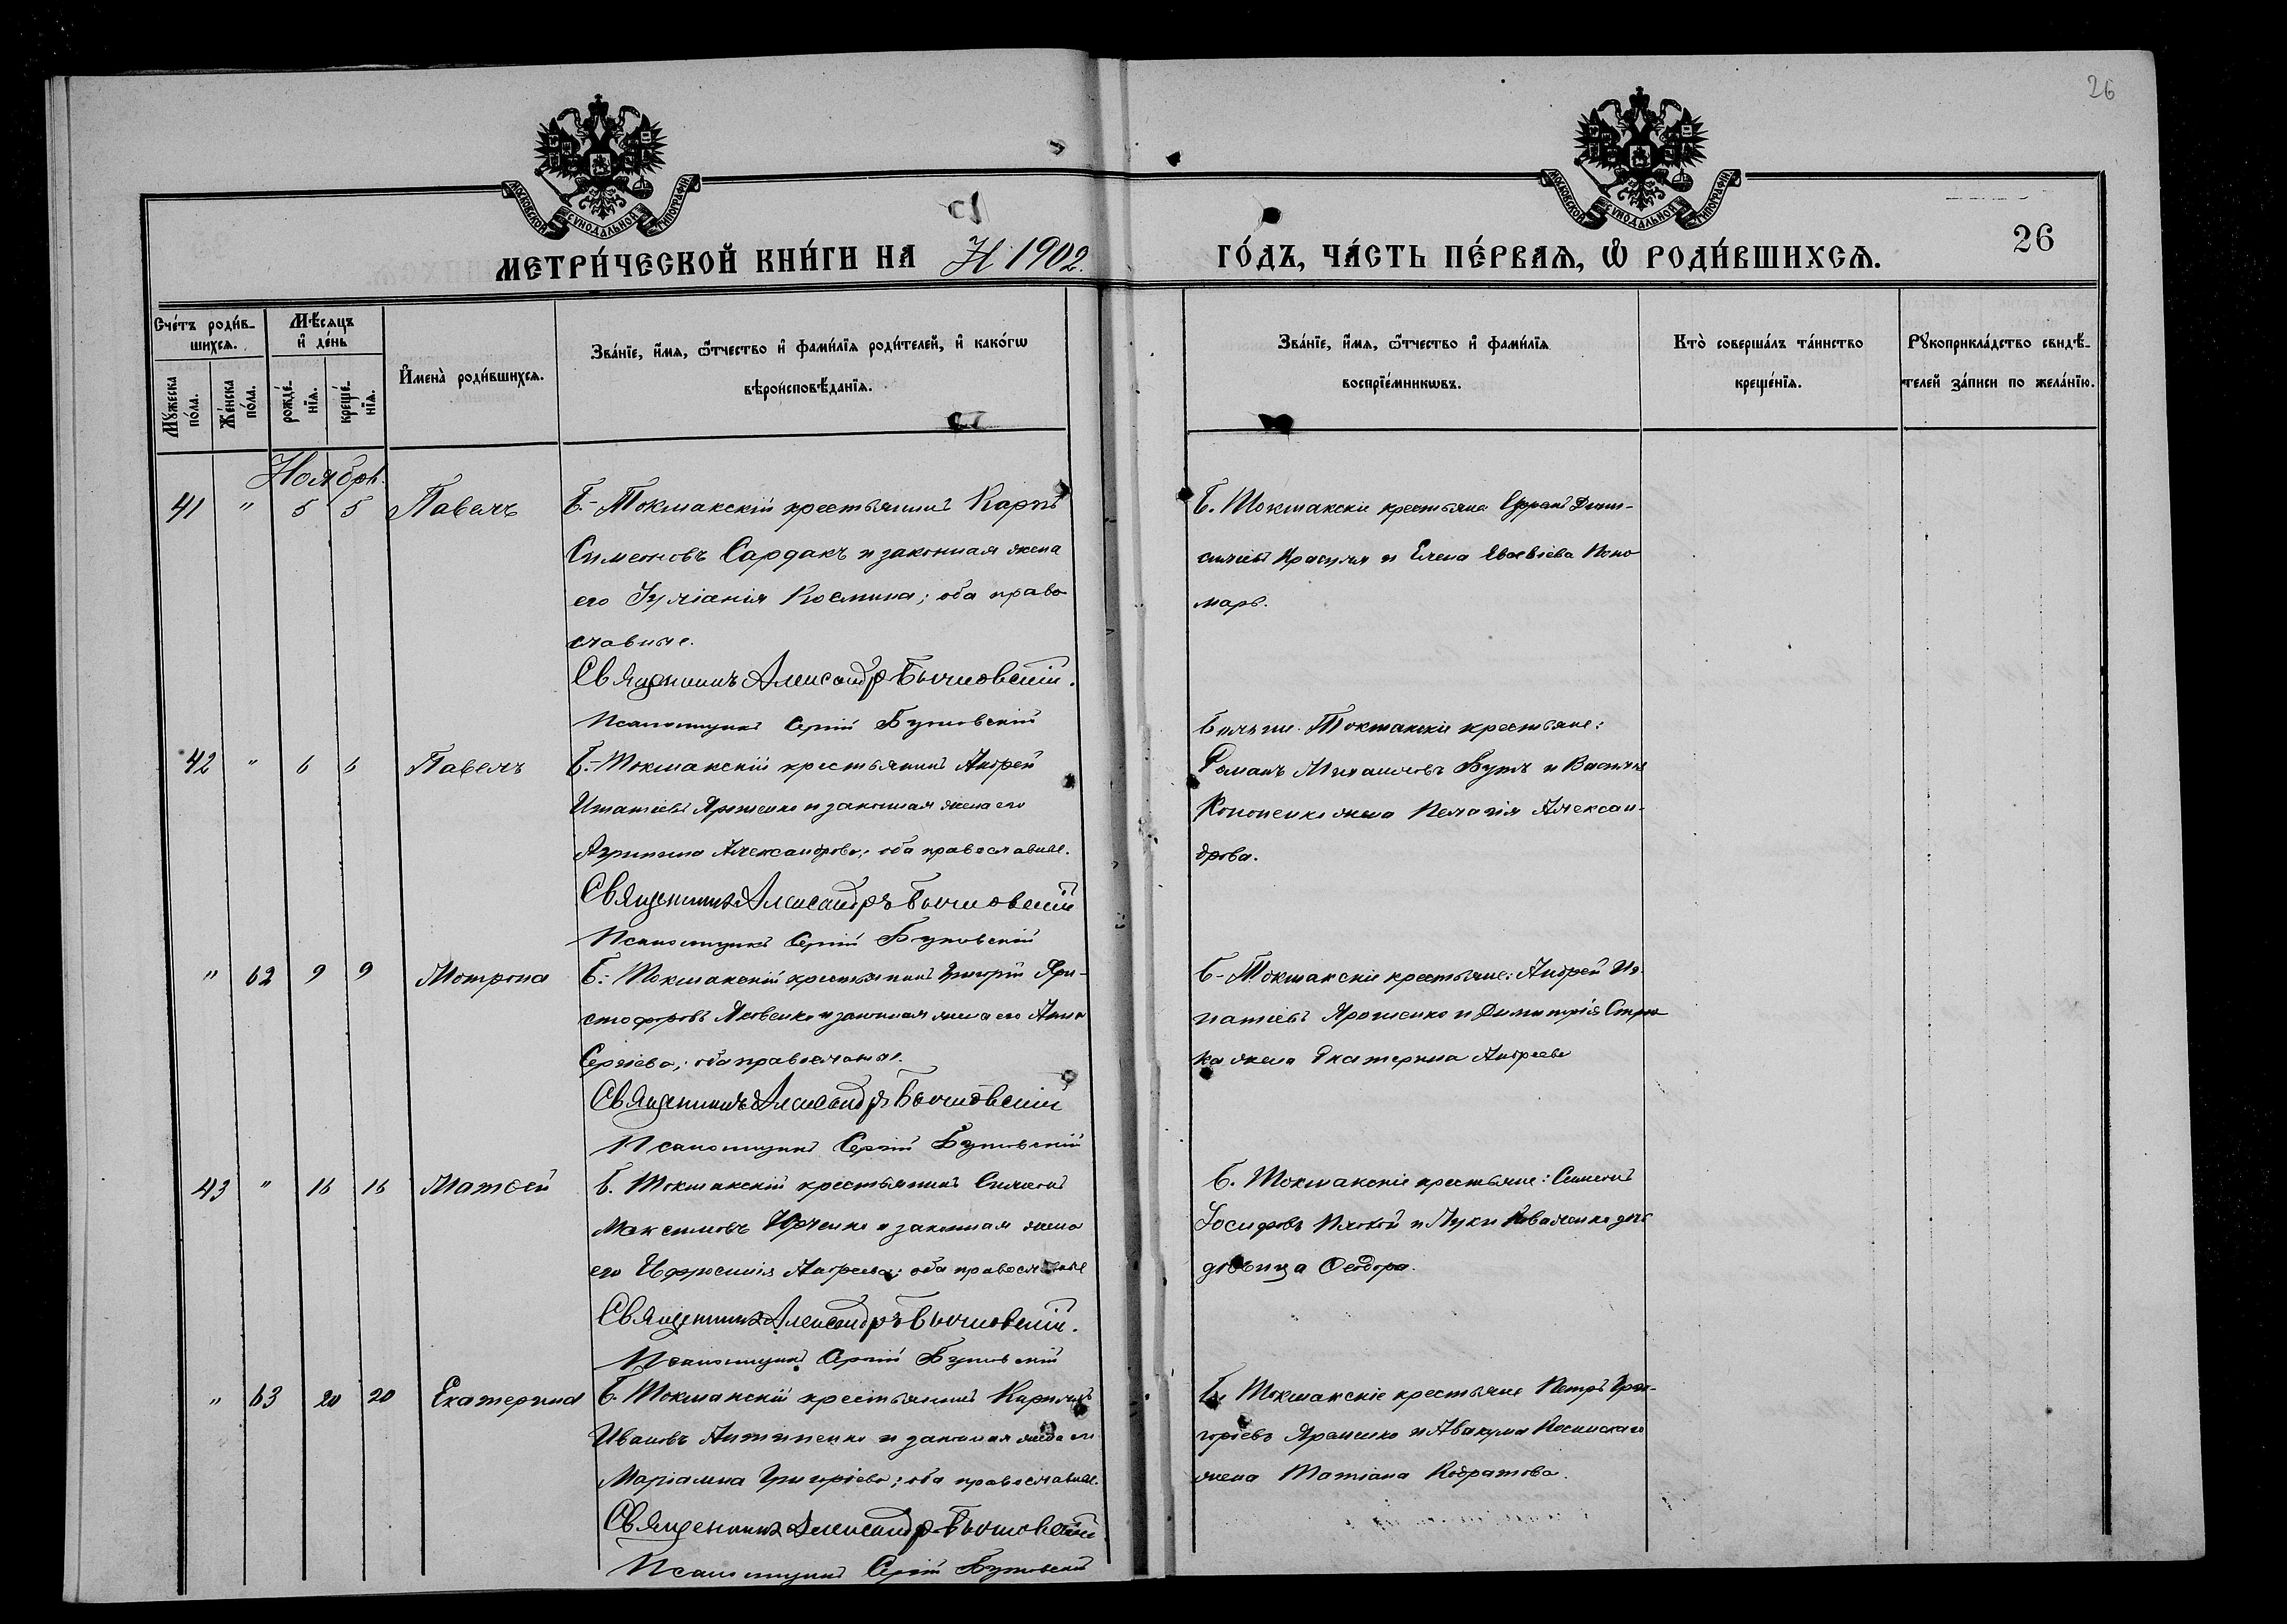 26
МОСКОВСКОЙ СѴНОДАЛЬНОЙ ТИПОГРАФІИ
МОСКОВСКОЙ СѴНОДАЛЬНОЙ ТИПОГРАФІИ
МЕТРИ́ЧЕСКОЙ КНИ́ГИ НА 1902. ГО́ДЪ, ЧА́СТЬ ПЕ́РВАѦ, Ѿ РОДИ́ВШИХСѦ.
26
Счетъ роди́в-
шихсѧ.
Мѣ́сѧцъ
и҆ де́нь
Мꙋжеска
по́ла.
Же́нска
по́ла.
рожде́-
нїѧ.
креще́-
нїѧ.
И҆мена̀ роди́вшихсѧ.
Зва́нїе, и҆́мѧ, ѻ҆́тчество и҆ фами́лїѧ роди́телей, и҆ како́гѡ
вѣроисповѣ́данїѧ.
Зва́нїе, и҆́мѧ, ѻ҆́тчество и҆ фами́лїѧ
воспрїе́мникѡвъ.
Кто̀ соверша́лъ та́инство
креще́нїѧ.
Рꙋкоприкла́дство свидѣ́-
телей за́писи по жела́нїю.
Ноябрь.
41 " 5 5 Павелъ
Б.-Токмакскій крестьянинъ Карпъ
Симеоновъ Сардакъ и законная жена
его Іуліанія Космина; оба право
славные.
Священникъ Александръ
Псаломщикъ Сергій Бутовскій
Б. Токмакскіе крестьяне Ефремъ
и Елена Евсевіева Поно
марь.
42 " 6 6 Павелъ
Б.-Токмакскій крестьянинъ Андрей
Игнатіевъ Ярошенко и законная жена его
Агрипина Александрова; оба православные.
Священникъ Александръ
Псаломщикъ Сергій Бутовскій
Больше-Токмакскіе крестьяне:
Романъ Михаиловъ и
Кононенко жена Пелагія Алексан-
дрова.
" 62 9 9 Мотрона
Б.-Токмакскій крестьянинъ Григорій Хри-
стофоровъ Яковенко и законная жена его Анна
Сергіева; оба православные.
Священникъ Александръ
Псаломщикъ Сергій Бутовскій
Б-Токмакскіе крестьяне: Андрей Иг-
натіевъ Ярошенко и Димитрія
жена Екатерина Андреева
43 " 16 16 Матѳей
Б. Токмакскій крестьянинъ Симеонъ
Максимовъ Юрченко и законная жена
его Евфросинія Андреева; оба православные
Священникъ Александръ
Псаломщикъ Сергій Бутовскій
Б. Токмакскіе крестьяне: Симеонъ
Іосифовъ Плохой и Луки Коваленко дочь
дѣвица Ѳеодора.
" 63 20 20 Екатерина
Б. Токмакскій крестьянинъ Кириллъ
Ивановъ Антипенко и законная жена его
Маріамна Григоріева; оба православные.
Священникъ Александръ
Псаломщикъ Сергій Бутовскій
Б. Токмакскіе крестьяне Петръ Гри-
горіевъ Ярошенко и Авакума
жена Татіана Кодратова.